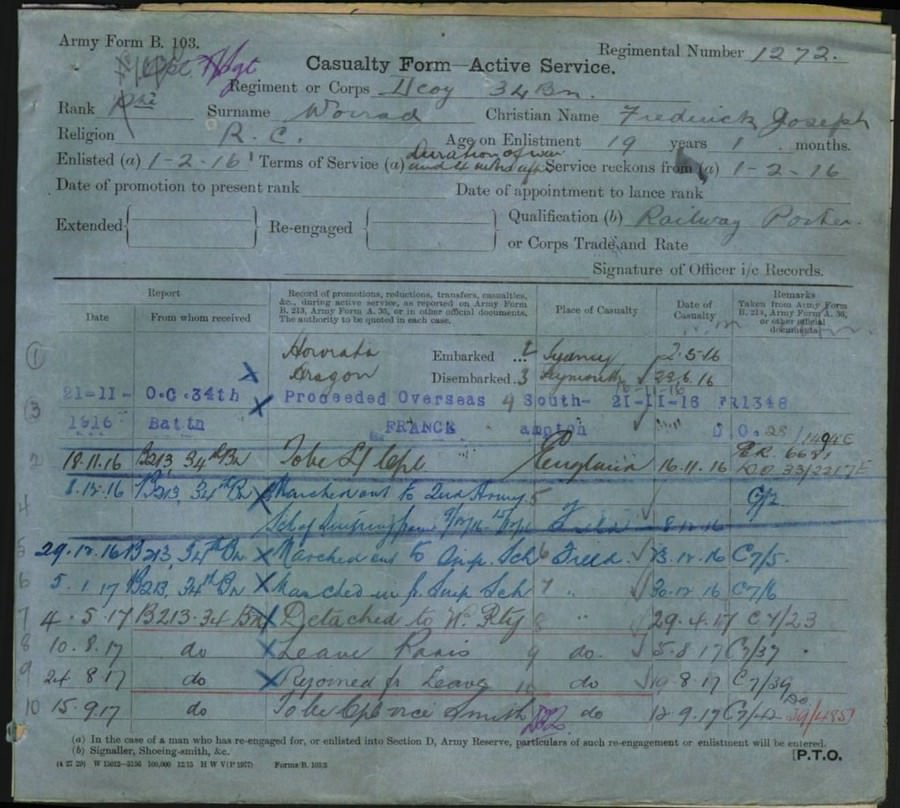 Army Form B. 103.
Regimental Number 1272.
Casualty Form—Active Service.
Regiment or Corps D coy 34 Bn.
Rank Pte Surname Worrad Christian Name Frederick Joseph
Religion R. C. Age on Enlistment 19 years 1 months.
Enlisted (a) 1-2-16 Terms of Service (a) Duration of war Service reckons from (a) 1-2-16
Date of promotion to present rank Date of appointment to lance rank
Extended Re-engaged Qualification (b) Railway Porter
or Corps Trade and Rate
Signature of Officer i/c Records.
Report
Date From whom received
Record of promotions, reductions, transfers, casualties, &c., during active service, as reported on Army Form B. 213, Army Form A. 36, or in other official documents. The authority to be quoted in each case.
Place of Casualty
Date of Casualty
Remarks
Taken from Army Form B. 213, Army Form A. 36, or other official documents.
1 Hororata Embarked Sydney 2.5.16
Aragon Disembarked 3 Plymouth 6.16
21-11- O.C. 34th Proceeded Overseas 4 South- 21-11-16 FR1348
3 1916 Battn FRANCE ampton
2 18.11.16 B213 34th Bn To be L/Cpl England 16.11.16
8.12.16 B213, 34th Bn Marched out to 2nd Army 5
4 Sch of
5 29.12.16 B213, 34th Bn Marched out to Sch 6 Field 12.16 C7/5.
6 5.1.17 B213, 34th Bn Marched in Sch 7 " 30.12.16 C7/6
7 4.5.17 B213.34 Bn Detached to W. Pty 8 " 29.4.17 C7/23
8 10.8.17 do Leave Paris 9 do. 5.8.17 C7/37.
9 24.8.17 do Rejoined fr Leave 10 do 8.17 C7/39
10 15.9.17 do To be Cpl vice Smith do 12.9.17 C7/42
(a) In the case of a man who has re-engaged for, or enlisted into Section D, Army Reserve, particulars of such re-engagement or enlistment will be entered.
(b) Signaller, Shoeing-smith, &c.
[P.T.O.
Forms/B. 103/3